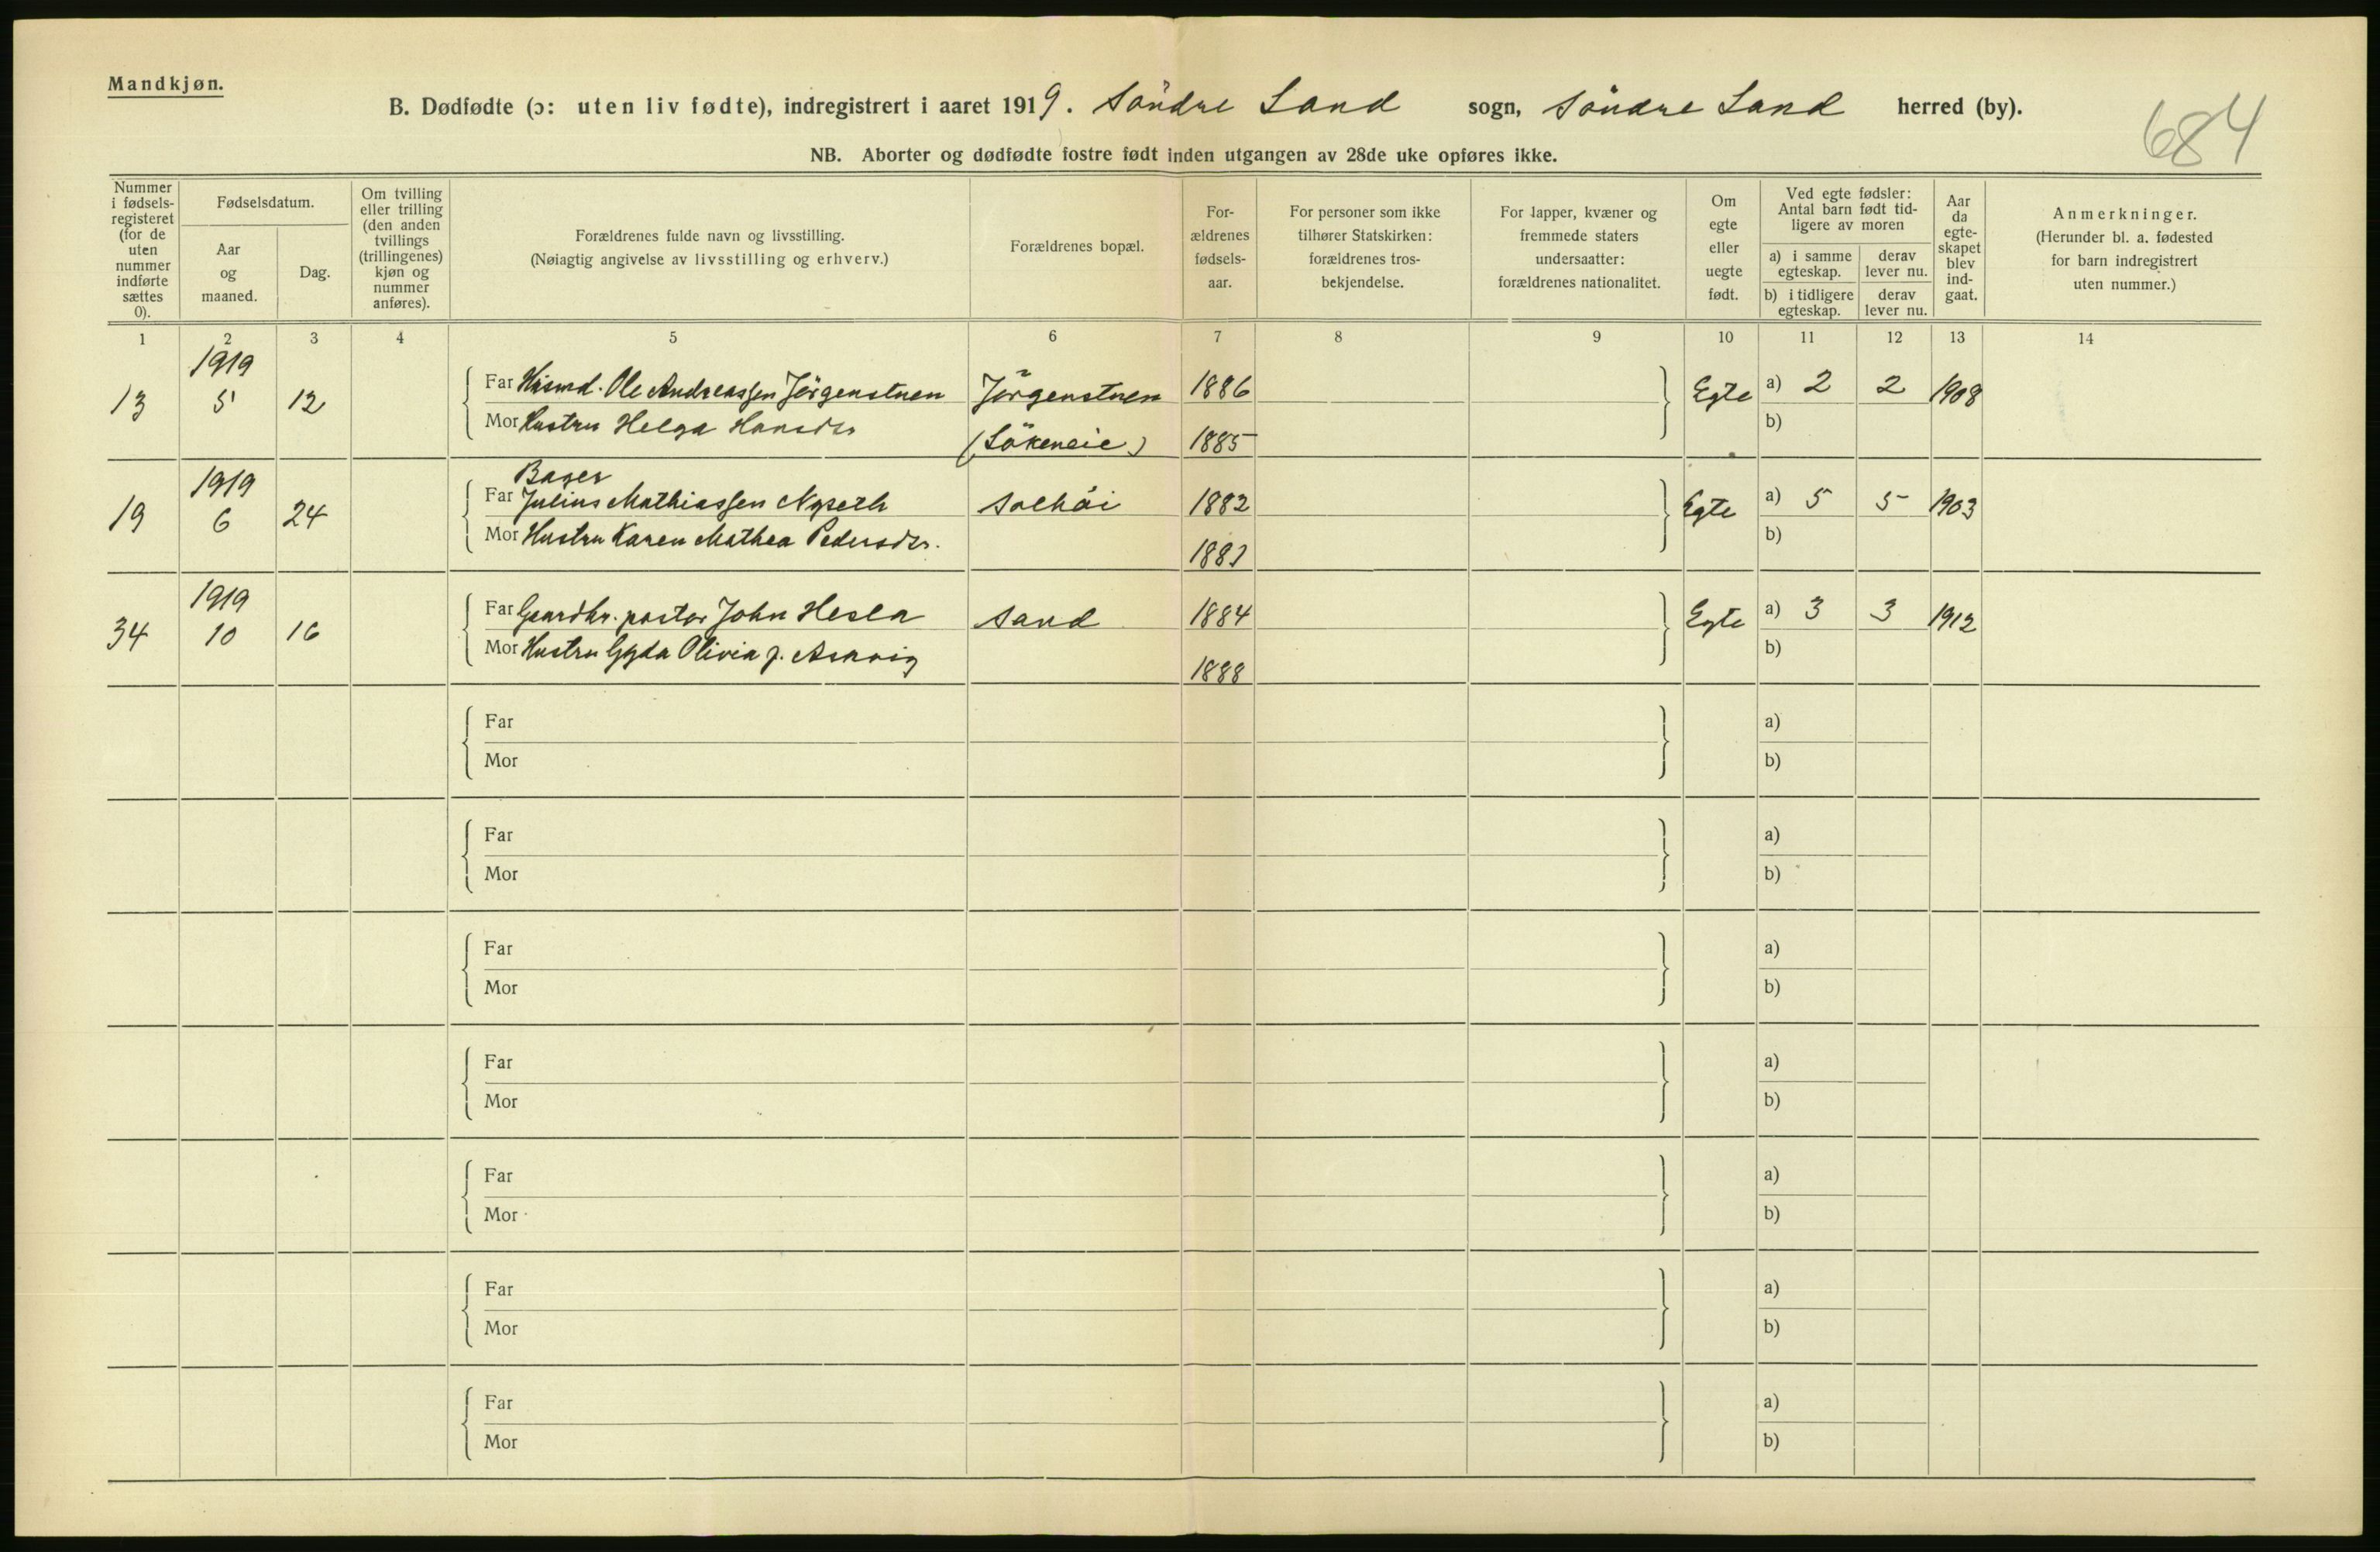 Mandkjøn.
B. Dødfødte (ɔ: uten liv fødte), indregistrert i aaret 1919. Söndre Land sogn, Söndre Land herred (by).
684
NB. Aborter og dødfødte fostre født inden utgangen av 28de uke opføres ikke.
Nummer i fødselsregisteret (for de uten nummer indførte sættes 0).
Fødselsdatum.
Aar og maaned.
Dag.
Om tvilling eller trilling (den anden tvillings (trillingenes) kjøn og nummer anføres).
Forældrenes fulde navn og livsstilling.
(Nøiagtig angivelse av livsstilling og erhverv.)
Forældrenes bopæl.
Forældrenes fødselsaar.
For personer som ikke tilhører Statskirken: forældrenes trosbekjendelse.
For lapper, kvæner og fremmede staters undersaatter: forældrenes nationalitet.
Om egte eller uegte født.
Ved egte fødsler: Antal barn født tidligere av moren
a) i samme egteskap.
derav lever nu.
b) i tidligere egteskap.
derav lever nu.
Aar da egteskapet blev indgaat.
Anmerkninger.
(Herunder bl. a. fødested for barn indregistrert uten nummer.)
1 2 3 4 5 6 7 8 9 10 11 12 13 14
1919
13 5 12 Far Husmd. Ole Andreassen Jörgenstuen Jörgenstuen 1886 Egte a) 2 2 1908
Mor Hustru Helga Hansdtr (Lökeneie) 1885 b)
1919 Bager
19 6 24 Far Julius Mathiassen Nyseth Solhöi 1882 Egte a) 5 5 1903
Mor Hustru Karen Mathea Pedersdtr. 1881 b)
1919
34 10 16 Far Gaardbr. pastor John Hesla Sand 1884 Egte a) 3 3 1912
Mor Hustru Gyda Olivia f. 1888 b)
Far a)
Mor b)
Far a)
Mor b)
Far a)
Mor b)
Far a)
Mor b)
Far a)
Mor b)
Far a)
Mor b)
Far a)
Mor b)